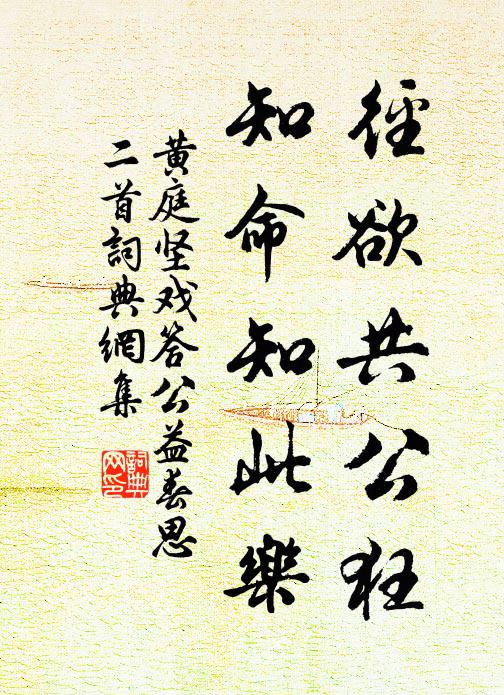 徑欲共公狂
知命知此樂
黄庭坚戏答公益春思
二首詞典網集
詞典网印